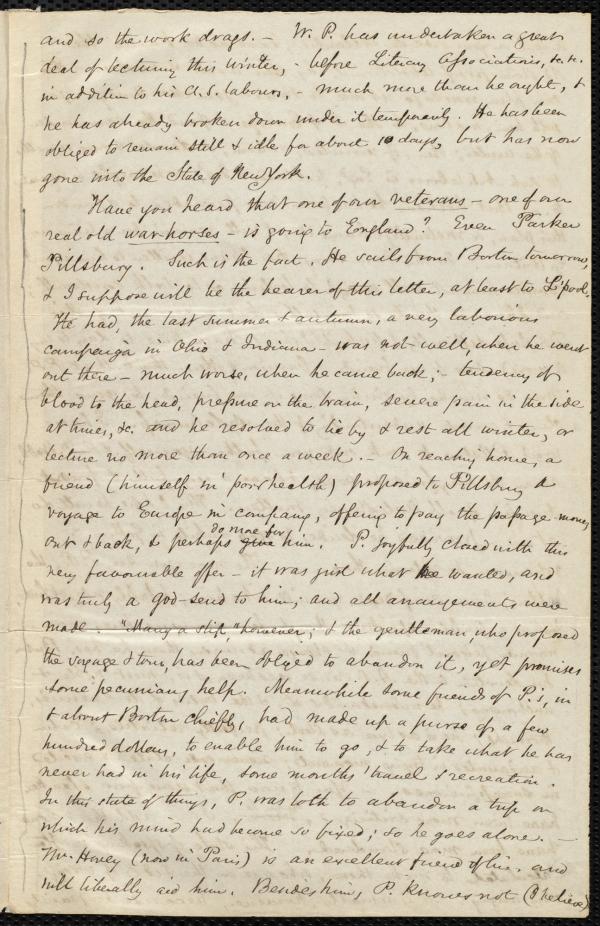 and so the work drags. – W. P. has undertaken a great
deal of lecturing this winter, – before Literary Associations, &c. &c.
in addition to his A. S. labours, – much more than he ought, &
he has already broken down under it temporarily. He has been
obliged to remain still & idle for about 10 days, but has now
gone into the State of New York.
Have you heard that one of our veterans – one of our
real old war-horses – is going to England? Even Parker
Pillsbury. Such is the fact. He sails from Boston tomorrow,
& I suppose will be the bearer of this letter, at least to L'pool.
He had, the last summer & autumn, a very laborious
campaign in Ohio & Indiana – was not well, when he went
out there – much worse, when he came back; – tendency of
blood to the head, pressure on the brain, severe pain in the side
at times, &c. and he resolved to lie by & rest all winter, or
lecture no more than once a week. – On reaching home, a
friend (himself in poor health) proposed to Pillsbury a
voyage to Europe in company, offering to pay the passage-money
out & back, & perhaps give do more for him. P. joyfully closed with this
very favourable offer – it was just what he wanted, and
was truly a god-send to him; and all arrangements were
made. "Many a slip," however; & the gentleman, who proposed
the voyage & tour, has been obliged to abandon it, yet promises
some pecuniary help. Meanwhile some friends of P.'s, in
& about Boston chiefly, had made up a purse of a few
hundred dollars, to enable him to go, & to take what he has
never had in his life, some months' travel & recreation.
In this state of things, P. was loth to abandon a trip on
which his mind had become so fixed; so he goes alone. –
Mr. Hovey (now in Paris) is an excellent friend of his, and
will liberally aid him. Besides him, P. knows not (I believe)